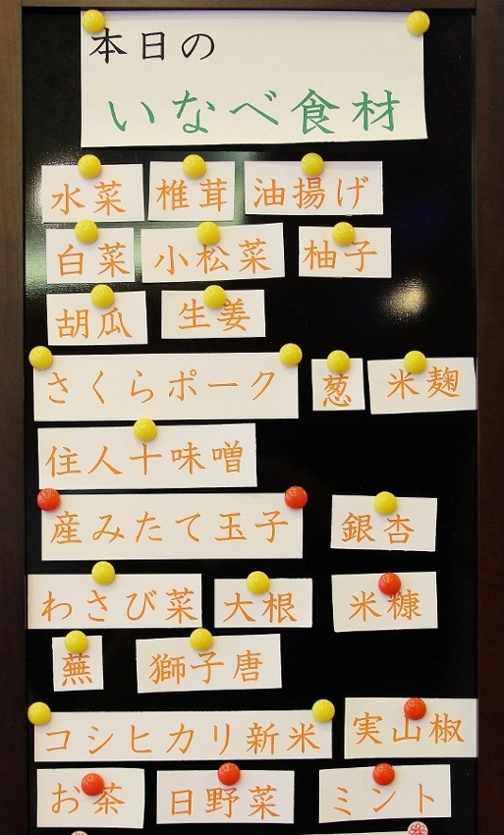 本日の
いなべ食材
水菜 椎茸 油揚げ
白菜 小松菜 柚子
胡瓜 生姜
さくらポーク 葱 米麹
住人十味噌
産みたて玉子 銀杏
わさび菜 大根 米糠
蕪 獅子唐
コシヒカリ新米 実山椒
お茶 日野菜 ミント